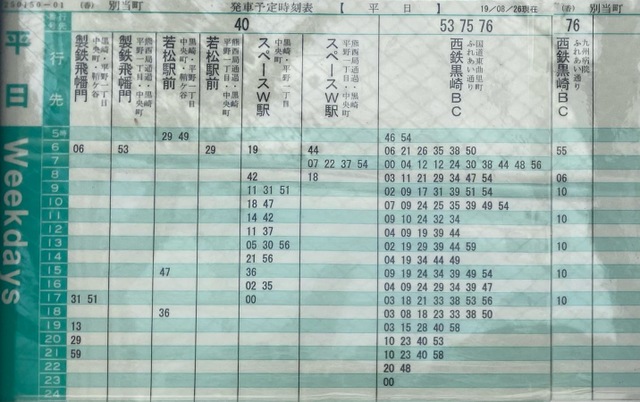 250150-01 (香) 別当町 発車予定時刻表 【 平 日 】 19/08/26現在 (香) 別当町
番号 行先 40 53 75 76 76
平日
Weekdays
行先
黒崎・平野一丁目 中央町・鞘ケ谷 製鉄飛幡門
熊西局通過・黒崎 平野一丁目・中央町 製鉄飛幡門
黒崎・平野一丁目 中央町・鞘ケ谷 若松駅前
熊西局通過・黒崎 平野一丁目・中央町 若松駅前
黒崎・平野一丁目 中央町 スペースW駅
熊西局通過・黒崎 平野一丁目・中央町 スペースW駅
国道東曲里町 ふれあい通り 西鉄黒崎BC
九州病院 ふれあい通り 西鉄黒崎BC
5時 29 49 46 54
6 06 53 29 19 44 06 21 26 35 38 50 55
7 07 22 37 54 00 04 12 12 24 30 38 44 48 56
8 42 18 03 11 21 29 34 47 54 06
9 11 31 51 02 09 17 31 39 51 54 10
10 18 47 07 09 24 25 35 39 49 54
11 14 42 09 10 24 32 34 10
12 11 37 04 09 19 39 44
13 05 30 56 02 19 29 39 44 59 10
14 21 56 04 19 34 44 49
15 47 36 09 19 24 34 39 49 54 10
16 02 35 04 09 24 29 34 39 47
17 31 51 00 03 18 21 33 38 53 56 10
18 36 03 08 18 23 33 38 50
19 13 03 15 28 40 58
20 29 10 23 40 53
21 59 10 23 40 58
22 20 48
23 00
24